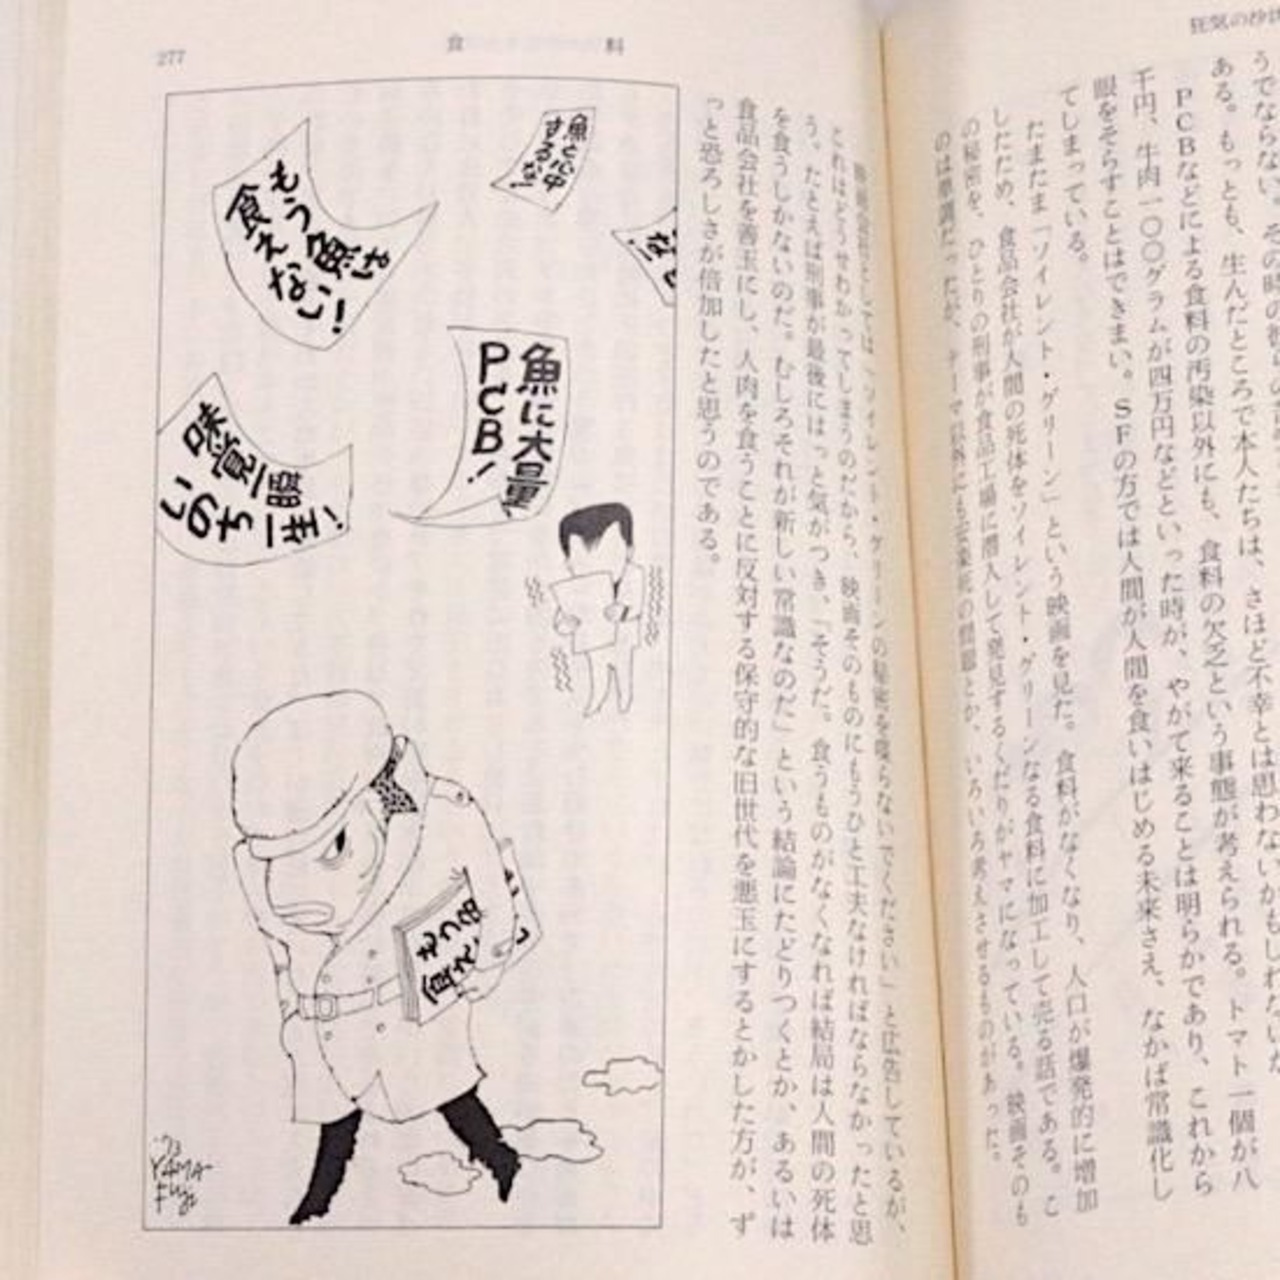 狂気の沙汰
うでならない。その時の彼らの
ある。もっとも、生んだところで本人たちは、さほど不幸とは思わないかもしれないが
PCBなどによる食料の汚染以外にも、食料の欠乏という事態が考えられる。トマト一個が八
千円、牛肉一〇〇グラムが四万円などといった時が、やがて来ることは明らかであり、これから
眼をそらすことはできまい。SFの方では人間が人間を食いはじめる未来さえ、なかば常識化し
てしまっている。
たまたま「ソイレント・グリーン」という映画を見た。食料がなくなり、人口が爆発的に増加
したため、食品会社が人間の死体をソイレント・グリーンなる食料に加工して売る話である。こ
の秘密を、ひとりの刑事が食品工場に潜入して発見するくだりがヤマになっている。映画そのも
のは単調だったが、テーマ以外にも安楽死の問題とか、いろいろ考えさせるものがあった。
映画会社としては「ソイレント・グリーンの秘密を喋らないでください」と広告しているが、
これはどうせわかってしまうのだから、映画そのものにもうひと工夫なければならなかったと思
う。たとえば刑事が最後にはっと気がつき、「そうだ。食うものがなくなれば結局は人間の死体
を食うしかないのだ。むしろそれが新しい常識なのだ」という結論にたどりつくとか、あるいは
食品会社を善玉にし、人肉を食うことに反対する保守的な旧世代を悪玉にするとかした方が、ず
っと恐ろしさが倍加したと思うのである。
277
食料
魚と心中
するな!
もう魚は
食えない!
魚に大量
PCB!
味覚一瞬
いのち一生!
もう魚
食え
'73
YAMA-
FUJI